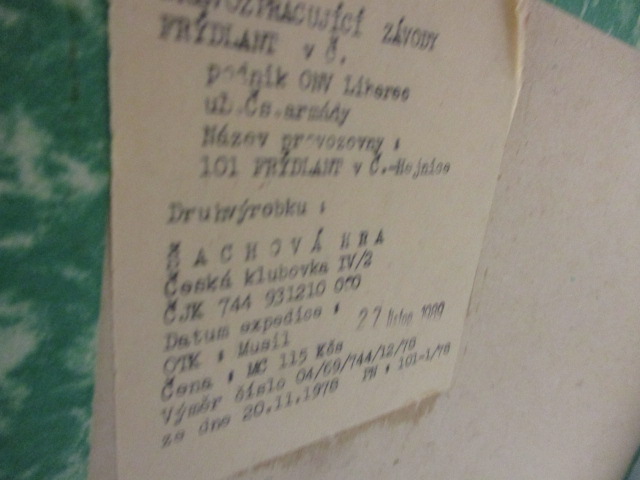 ZÁVODY
FRÝDLANT v Č.
podnik ONV Liberec
ul.Čs.armády
Název provozovny :
101 FRÝDLANT v Č.-Hejnice
Druhvýrobku :
Š A C H O V Á HRA
Česká klubovka IV/2
ČJK 744 931210 000
Datum expedice : 27 listop 1989
OTK : Musil
Cena : MC 115 Kčs
Výměr číslo 04/69/744/12/78
ze dne 20.11.1978 PH : 101-1/78